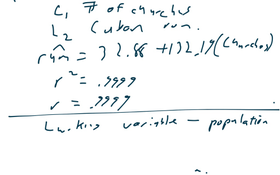 L1 # of churches
L2 Cuban rum
rum^ = 32.88 + 132.19(Churches)
r² = .9999
r = .9999
Lurking variable - population